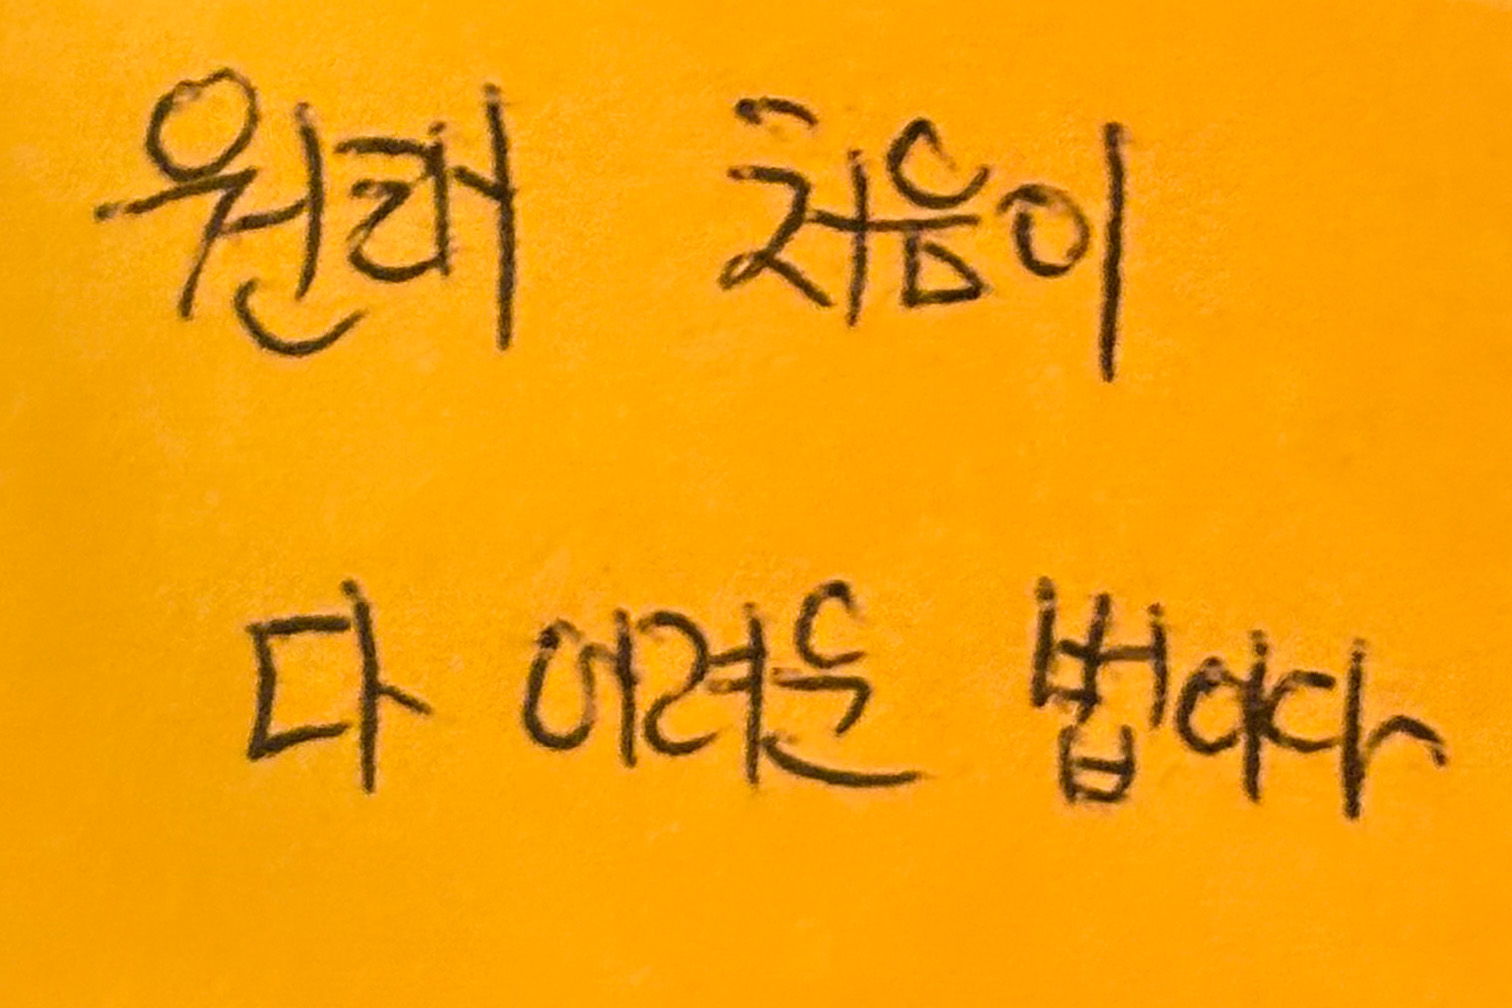 원래 처음이
다 어려운 법이다